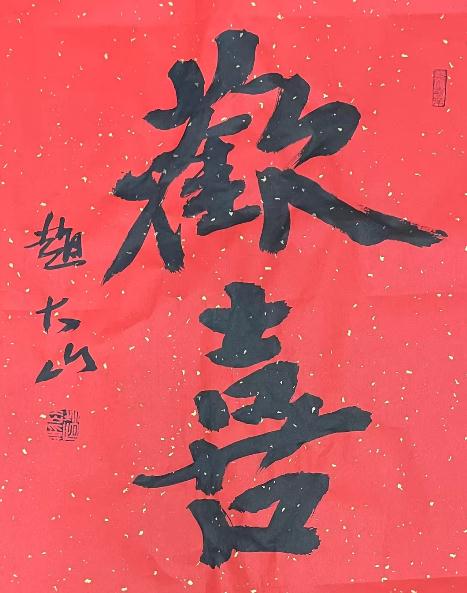 歡喜
趙大山